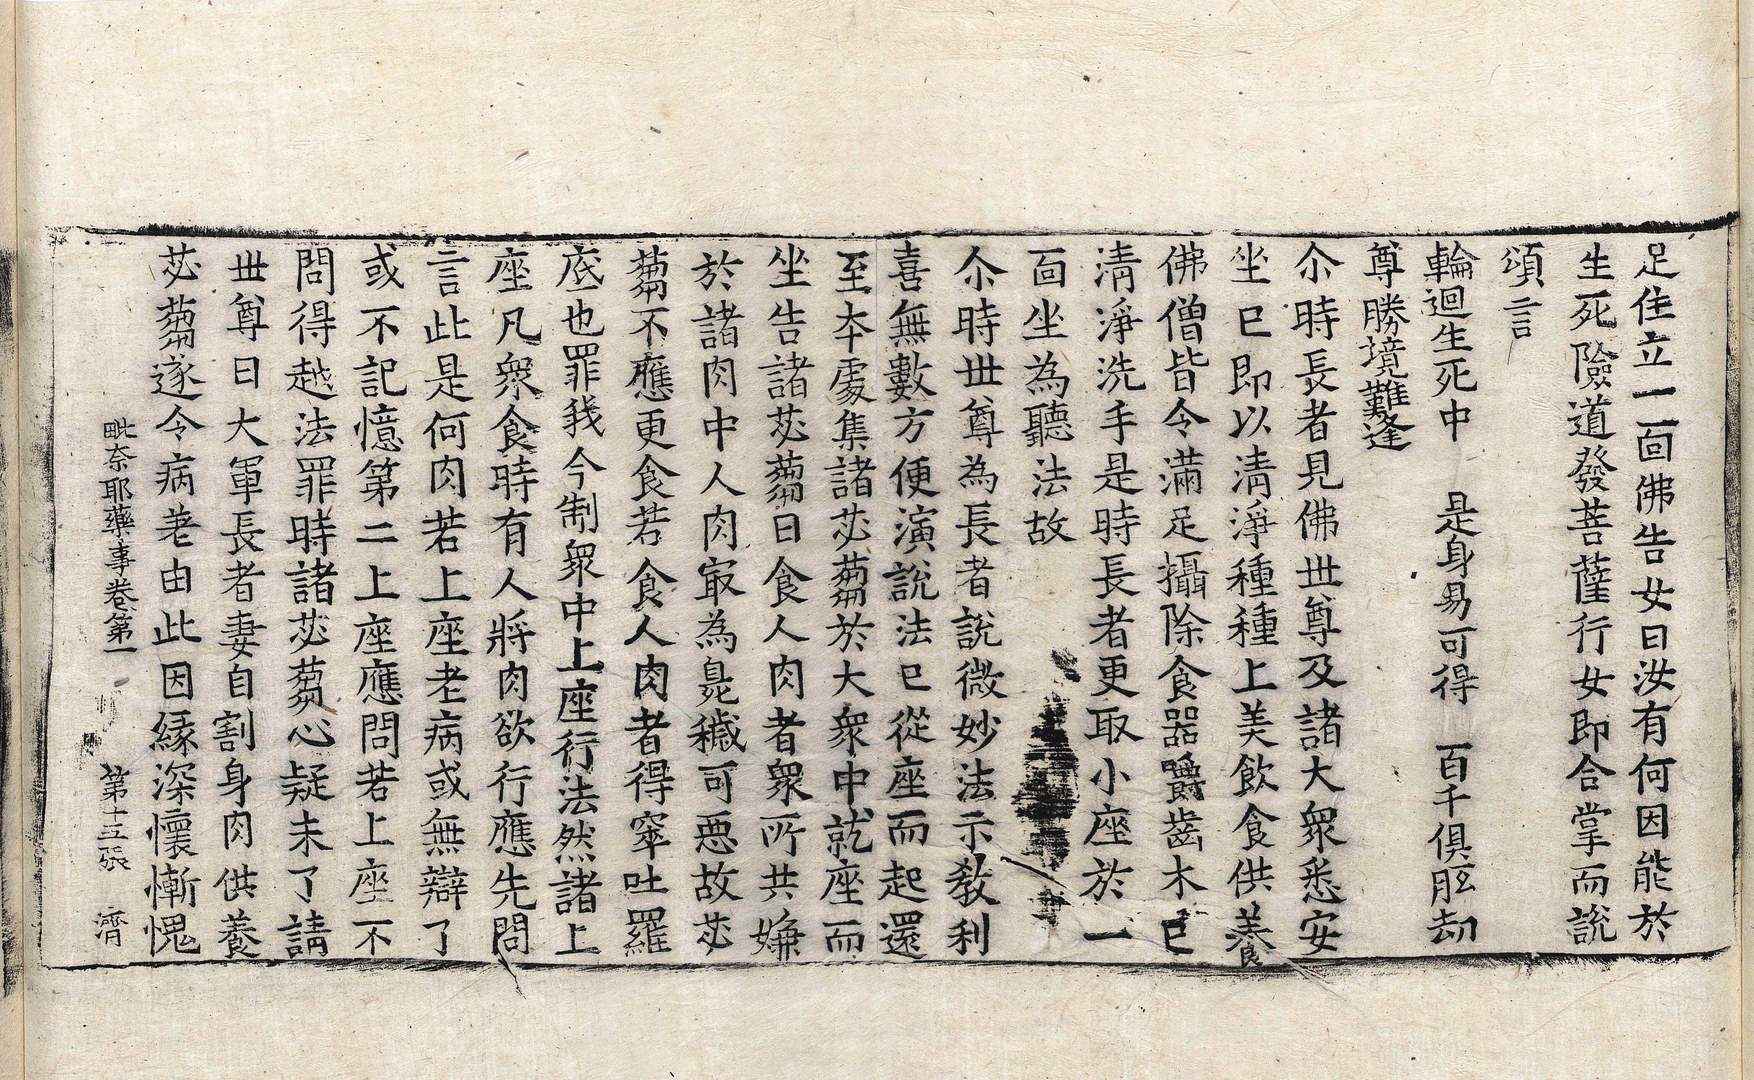 足住立一面佛告女曰汝有何因能於
生死險道發菩薩行女即合掌而說
頌言
輪迴生死中　是身易可得　百千俱胝劫
尊勝境難逢
尒時長者見佛世尊及諸大衆悉安
坐已即以清淨種種上美飲食供養
佛僧皆令滿足攝除食器嚼齒木已
清淨洗手是時長者更取小座於一
面坐為聽法故
尒時世尊為長者說微妙法示教利
喜無數方便演說法已從座而起還
至本處集諸苾蒭於大衆中就座而
坐告諸苾蒭曰食人肉者衆所共嫌
於諸肉中人肉冣為臭穢可惡故苾
蒭不應更食若食人肉者得窣吐羅
底也罪我今制衆中上座行法然諸上
座凡衆食時有人將肉欲行應先問
言此是何肉若上座老病或無辯了
或不記憶第二上座應問若上座不
問得越法罪時諸苾蒭心疑未了請
世尊曰大軍長者妻自割身肉供養
苾蒭遂令病差由此因緣深懷慚愧
毗奈耶藥事卷第一　第十五張　濟